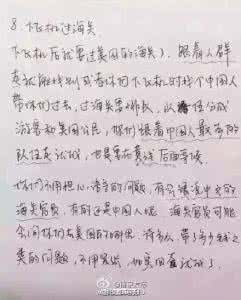 8. 下飞机过海关
下飞机后就要过美国的海关)，跟着人群
走就能找到或者你们下飞机时找个中国人
带你们过去，过海关要排队，以 分成
游客和美国公民，你们跟着中国人最多的
队伍走就行，也是要在黄线后面等候
你们不用担心语言的问题，有会说中文的
海关官员，有的还是中国人呢 海关官员可能
会问你们去美国 哪里 待多久，带了多少钱之
类的问题，不用紧张，如实回答就行了